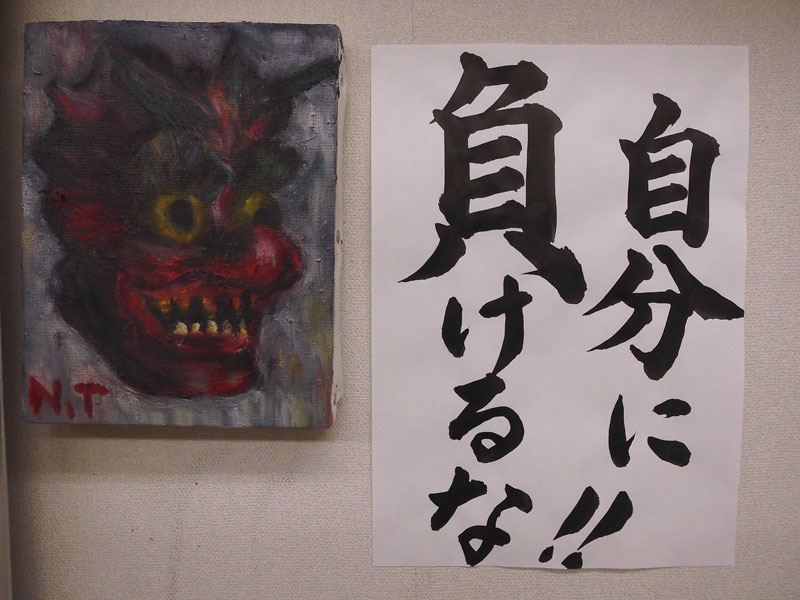 N.T
自分に
負けるな!!